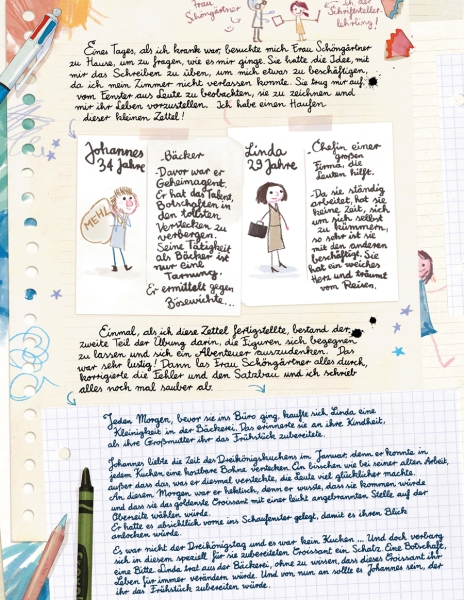 Frau
Schöngärtner
in der
Schriftsteller-
lehrling!
Eines Tages, als ich krank war, besuchte mich Frau Schöngärtner
zu Hause, um zu fragen, wie es mir ginge. Sie hatte die Idee, mit
mir das Schreiben zu üben, um mich etwas zu beschäftigen,
da ich mein Zimmer nicht verlassen konnte. Sie trug mir auf,
vom Fenster aus Leute zu beobachten, sie zu zeichnen und
mir ihr Leben vorzustellen. Ich habe einen Haufen
dieser kleinen Zettel!
Johannes
34 Jahre
MEHL
.Bäcker
-Davor war er
Geheimagent.
Er hat das Talent,
Botschaften in
den tollsten
Verstecken zu
verbergen.
Seine Tätigkeit
als Bäcker ist
nur eine
Tarnung.
Er ermittelt gegen
Bösewichte...
Linda
29 Jahre
Chefin einer
großen
Firma, die
Leuten hilft.
-Da sie ständig
arbeitet, hat sie
keine Zeit, sich
um sich selbst
zu kümmern,
so sehr ist sie
mit den anderen
beschäftigt. Sie
hat ein weiches
Herz und träumt
vom Reisen.
Einmal, als ich diese Zettel fertigstellte, bestand der
zweite Teil der Übung darin, die Figuren sich begegnen
zu lassen und sich ein Abenteuer auszudenken. Das
war sehr lustig! Dann las Frau Schöngärtner alles durch,
korrigierte die Fehler und den Satzbau und ich schrieb
alles noch mal sauber ab.
Jeden Morgen, bevor sie ins Büro ging, kaufte sich Linda eine
Kleinigkeit in der Bäckerei. Das erinnerte sie an ihre Kindheit,
als ihre Großmutter ihr das Frühstück zubereitete.
Johannes liebte die Zeit des Dreikönigskuchens im Januar, denn er konnte in
jedem Kuchen eine kostbare Bohne verstecken. Ein bisschen wie bei seiner alten Arbeit,
außer dass das, was er diesmal versteckte, die Leute viel glücklicher machte.
An diesem Morgen war er hektisch, denn er wusste, dass sie kommen würde
und dass sie das goldenste Croissant mit einer leicht angebrannten Stelle auf der
Oberseite wählen würde.
Er hatte es absichtlich vorne ins Schaufenster gelegt, damit es ihren Blick
anlocken würde.
Es war nicht der Dreikönigstag und es war kein Kuchen... Und doch verbarg
sich in diesem speziell für sie zubereiteten Croissant ein Schatz. Eine Botschaft,
eine Bitte. Linda trat aus der Bäckerei, ohne zu wissen, dass dieses Croissant ihr
Leben für immer verändern würde. Und von nun an sollte es Johannes sein, der
ihr das Frühstück zubereiten würde.